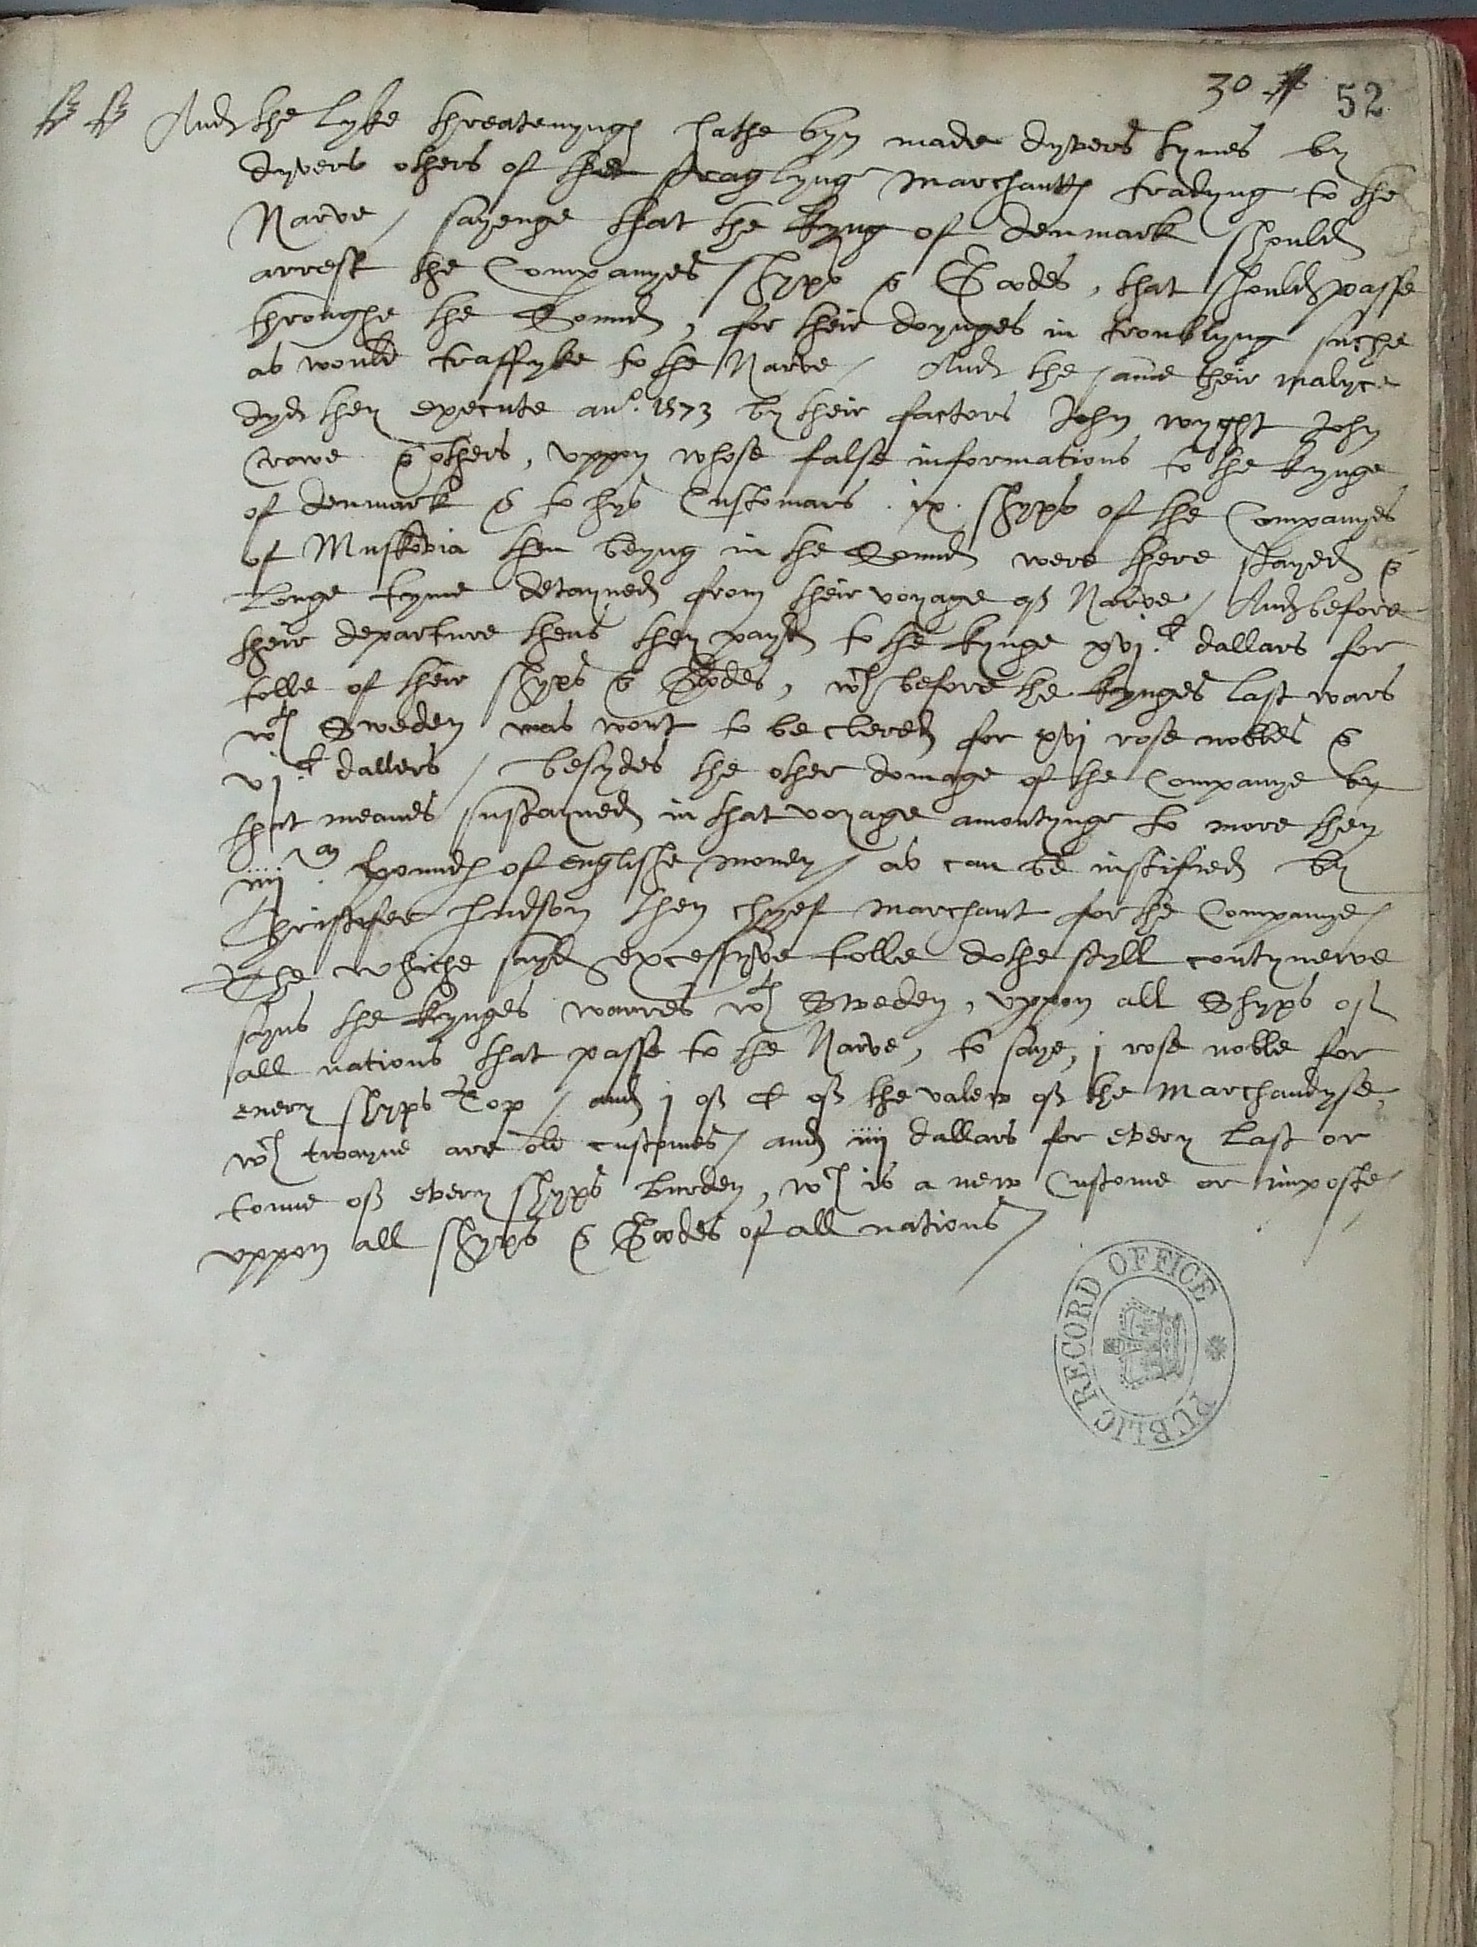 30 52
And the lyke threatenynges hathe byn made dyvers tymes by
dyvers others of the straglyng marchantes tradyng to the
Narve / sayenge that the kyng of denmark should
arrest the Companyes shyps & Goodes, that should passe
throughe the Sounde, for their doynges in troublyng suche
as would traffyke to the Narve / And the same their malyce
dyd they execute an°. 1573 by their factors John wyght John
Crowe & others, uppon whose false informations to the kynge
of denmark & to hys Customars .ix. shyps of the Companyes
of Muskovia then beyng in the Sounde were there stayed &
longe tyme detayned from their voyage of Narve / And before
their departure thens they payed to the kynge xvj.C dallars for
tolle of their shyps & Goodes, wch before the kynges last wars
wth Sweden was wont to be clered for xvj rose nobles &
vj.C dallers / besydes the other domage of the Companye by
that meanes sustayned in that voyage amontynge to more then
iiij.M poundes of englishe money / as can be iustified by
Christofer hudson then chyef marchant for the Companye /
The whiche sayd excessyve tolle dothe styll contynewe
syns the kynges warres wth Sweden, uppon all Shyps of
all nations that passe to the Narve, to saye, j rose noble for
every shyps Top / and j of C of the valew of the marchandyse,
wch twayne are old customes / and iiij dallars for every last or
tonne of every shyps burden, wch is a new Custome or imposte /
uppon all shyps & Goodes of all nations /
PUBLIC RECORD OFFICE